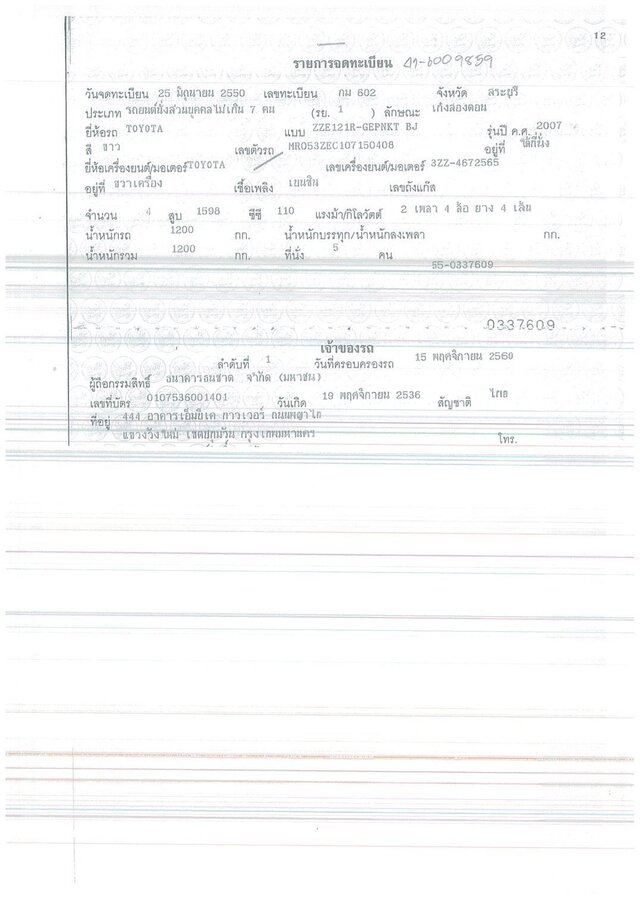 12
รายการจดทะเบียน 61-6009859
วันจดทะเบียน 25 มิถุนายน 2550 เลขทะเบียน กม 602 จังหวัด สระบุรี
ประเภท รถยนต์นั่งส่วนบุคคลไม่เกิน 7 คน (รย. 1 ) ลักษณะ เก๋งสองตอน
ยี่ห้อรถ TOYOTA แบบ ZZE121R-GEPNKT BJ รุ่นปี ค.ศ. 2007
สี ขาว เลขตัวรถ MR053ZEC107150408 อยู่ที่ ใต้ที่นั่ง
ยี่ห้อเครื่องยนต์/มอเตอร์ TOYOTA เลขเครื่องยนต์/มอเตอร์ 3ZZ-4672565
อยู่ที่ ขวาเครื่อง เชื้อเพลิง เบนซิน เลขถังแก๊ส
จำนวน 4 สูบ 1598 ซีซี 110 แรงม้า/กิโลวัตต์ 2 เพลา 4 ล้อ ยาง 4 เส้น
น้ำหนักรถ 1200 กก. น้ำหนักบรรทุก/น้ำหนักลงเพลา กก.
น้ำหนักรวม 1200 กก. ที่นั่ง 5 คน
55-0337609
0337609
เจ้าของรถ
ลำดับที่ 1 วันที่ครอบครองรถ 15 พฤศจิกายน 2560
ผู้ถือกรรมสิทธิ์ ธนาคารธนชาต จำกัด (มหาชน)
เลขที่บัตร 0107536001401 วันเกิด 19 พฤศจิกายน 2536 สัญชาติ ไทย
ที่อยู่ 444 อาคารเอ็มบีเค ทาวเวอร์ ถนนพญาไท
แขวงวังใหม่ เขตปทุมวัน กรุงเทพมหานคร โทร.